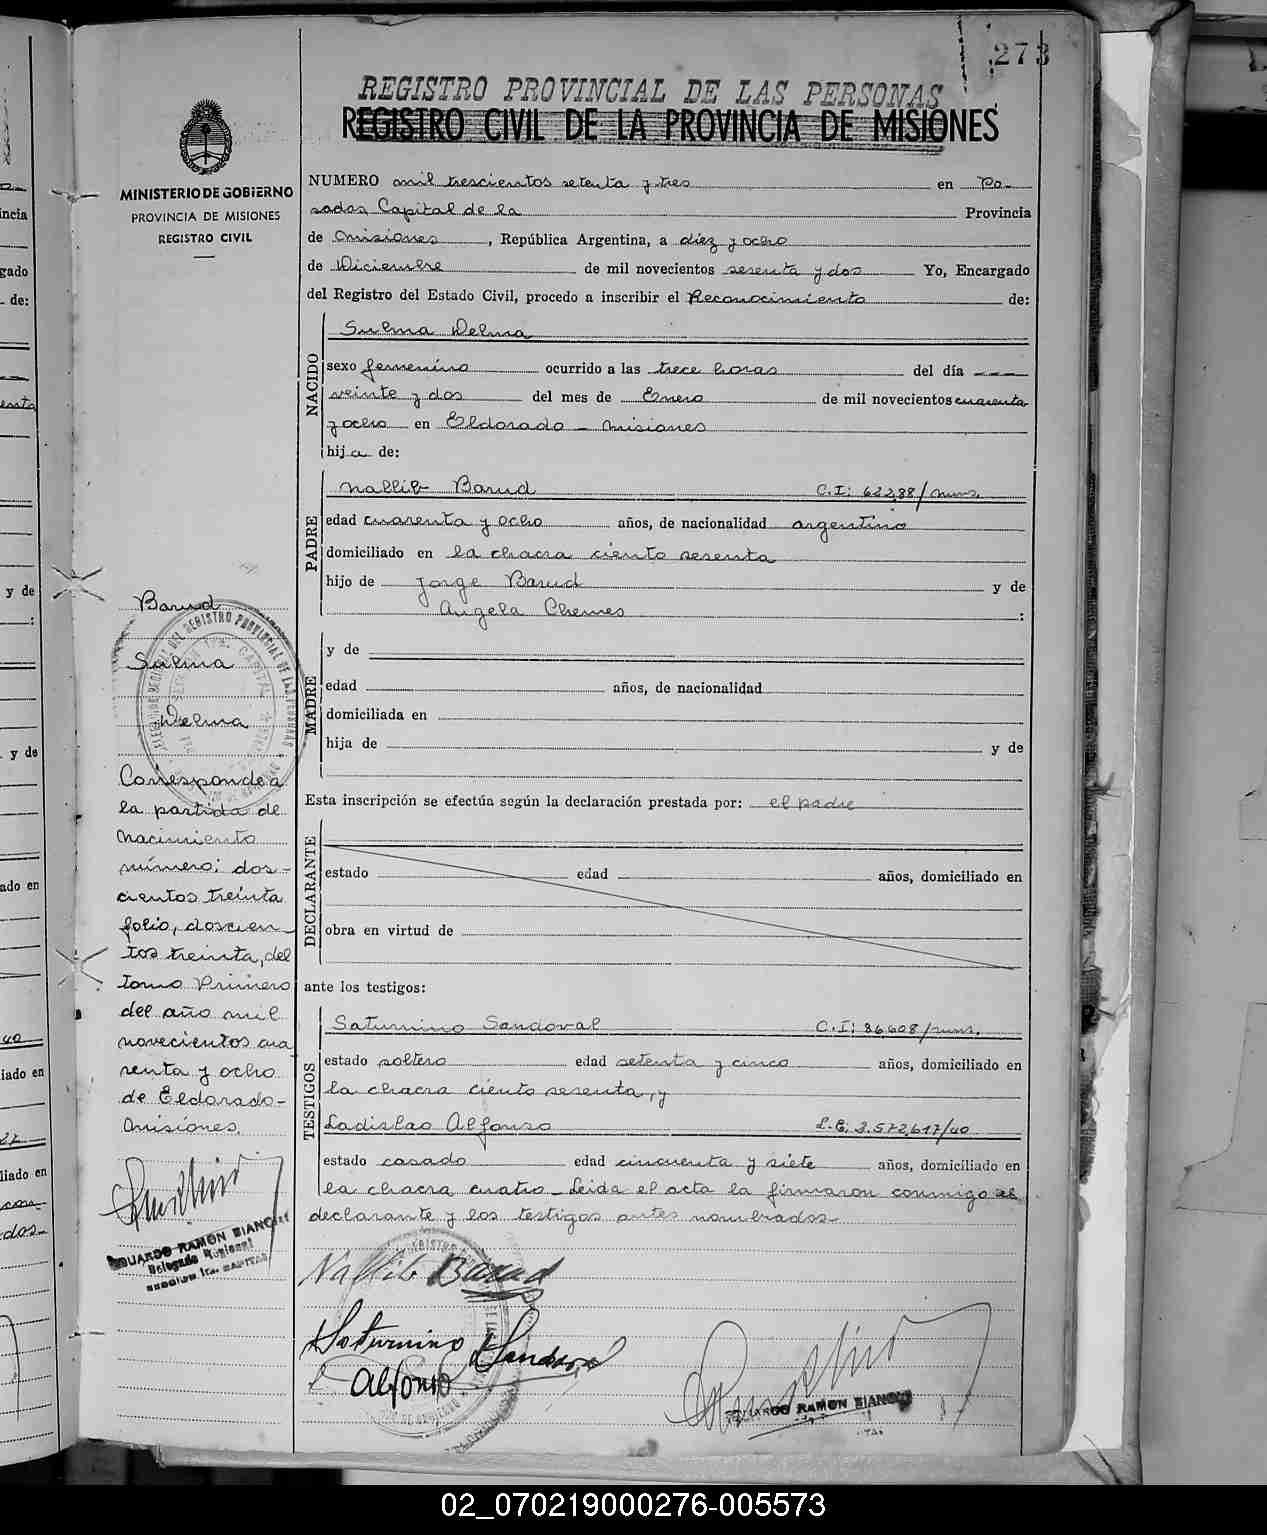 273
REGISTRO PROVINCIAL DE LAS PERSONAS
REGISTRO CIVIL DE LA PROVINCIA DE MISIONES
MINISTERIO DE GOBIERNO
PROVINCIA DE MISIONES
REGISTRO CIVIL
NUMERO mil trescientos setenta y tres en Po-
sadas Capital de la Provincia
de Misiones, República Argentina, a diez y ocho
de Diciembre de mil novecientos sesenta y dos Yo, Encargado
del Registro del Estado Civil, procedo a inscribir el Reconocimiento de:
NACIDO
Sulma Delma
sexo femenino ocurrido a las trece horas del día ---
veinte y dos del mes de Enero de mil novecientos cuarenta
y ocho en Eldorado - Misiones
hija de:
PADRE
Nallib Barud C.I: 62288/mns.
edad cuarenta y ocho años, de nacionalidad argentino
domiciliado en la chacra ciento sesenta
hijo de Jorge Barud y de
Angela Chemes :
MADRE
y de
edad años, de nacionalidad
domiciliada en
hija de y de
Esta inscripción se efectúa según la declaración prestada por: el padre
DECLARANTE
estado edad años, domiciliado en
obra en virtud de
ante los testigos:
TESTIGOS
Saturnino Sandoval C.I: 86,608/mns.
estado soltero edad setenta y cinco años, domiciliado en
la chacra ciento sesenta, y
Ladislao Alfonso L.E: 3.572,617/40
estado casado edad cincuenta y siete años, domiciliado en
la chacra cuatro - Leida el acta la firmaron conmigo el
declarante y los testigos antes nombrados-
Nallib Barud
Saturnino Sandoval
L Alfonso
EDUARDO RAMON BIANCHI
Barud
Sulma
Delma
Corresponde a
la partida de
Nacimiento
número: dos-
cientos treinta
folio, doscien-
tos treinta, del
tomo Primero
del año mil
novecientos cua
renta y ocho
de Eldorado-
Misiones.
EDUARDO RAMON BIANCHI
Delegado Regional
SECCION 1ra. CAPITAL
02_070219000276-005573